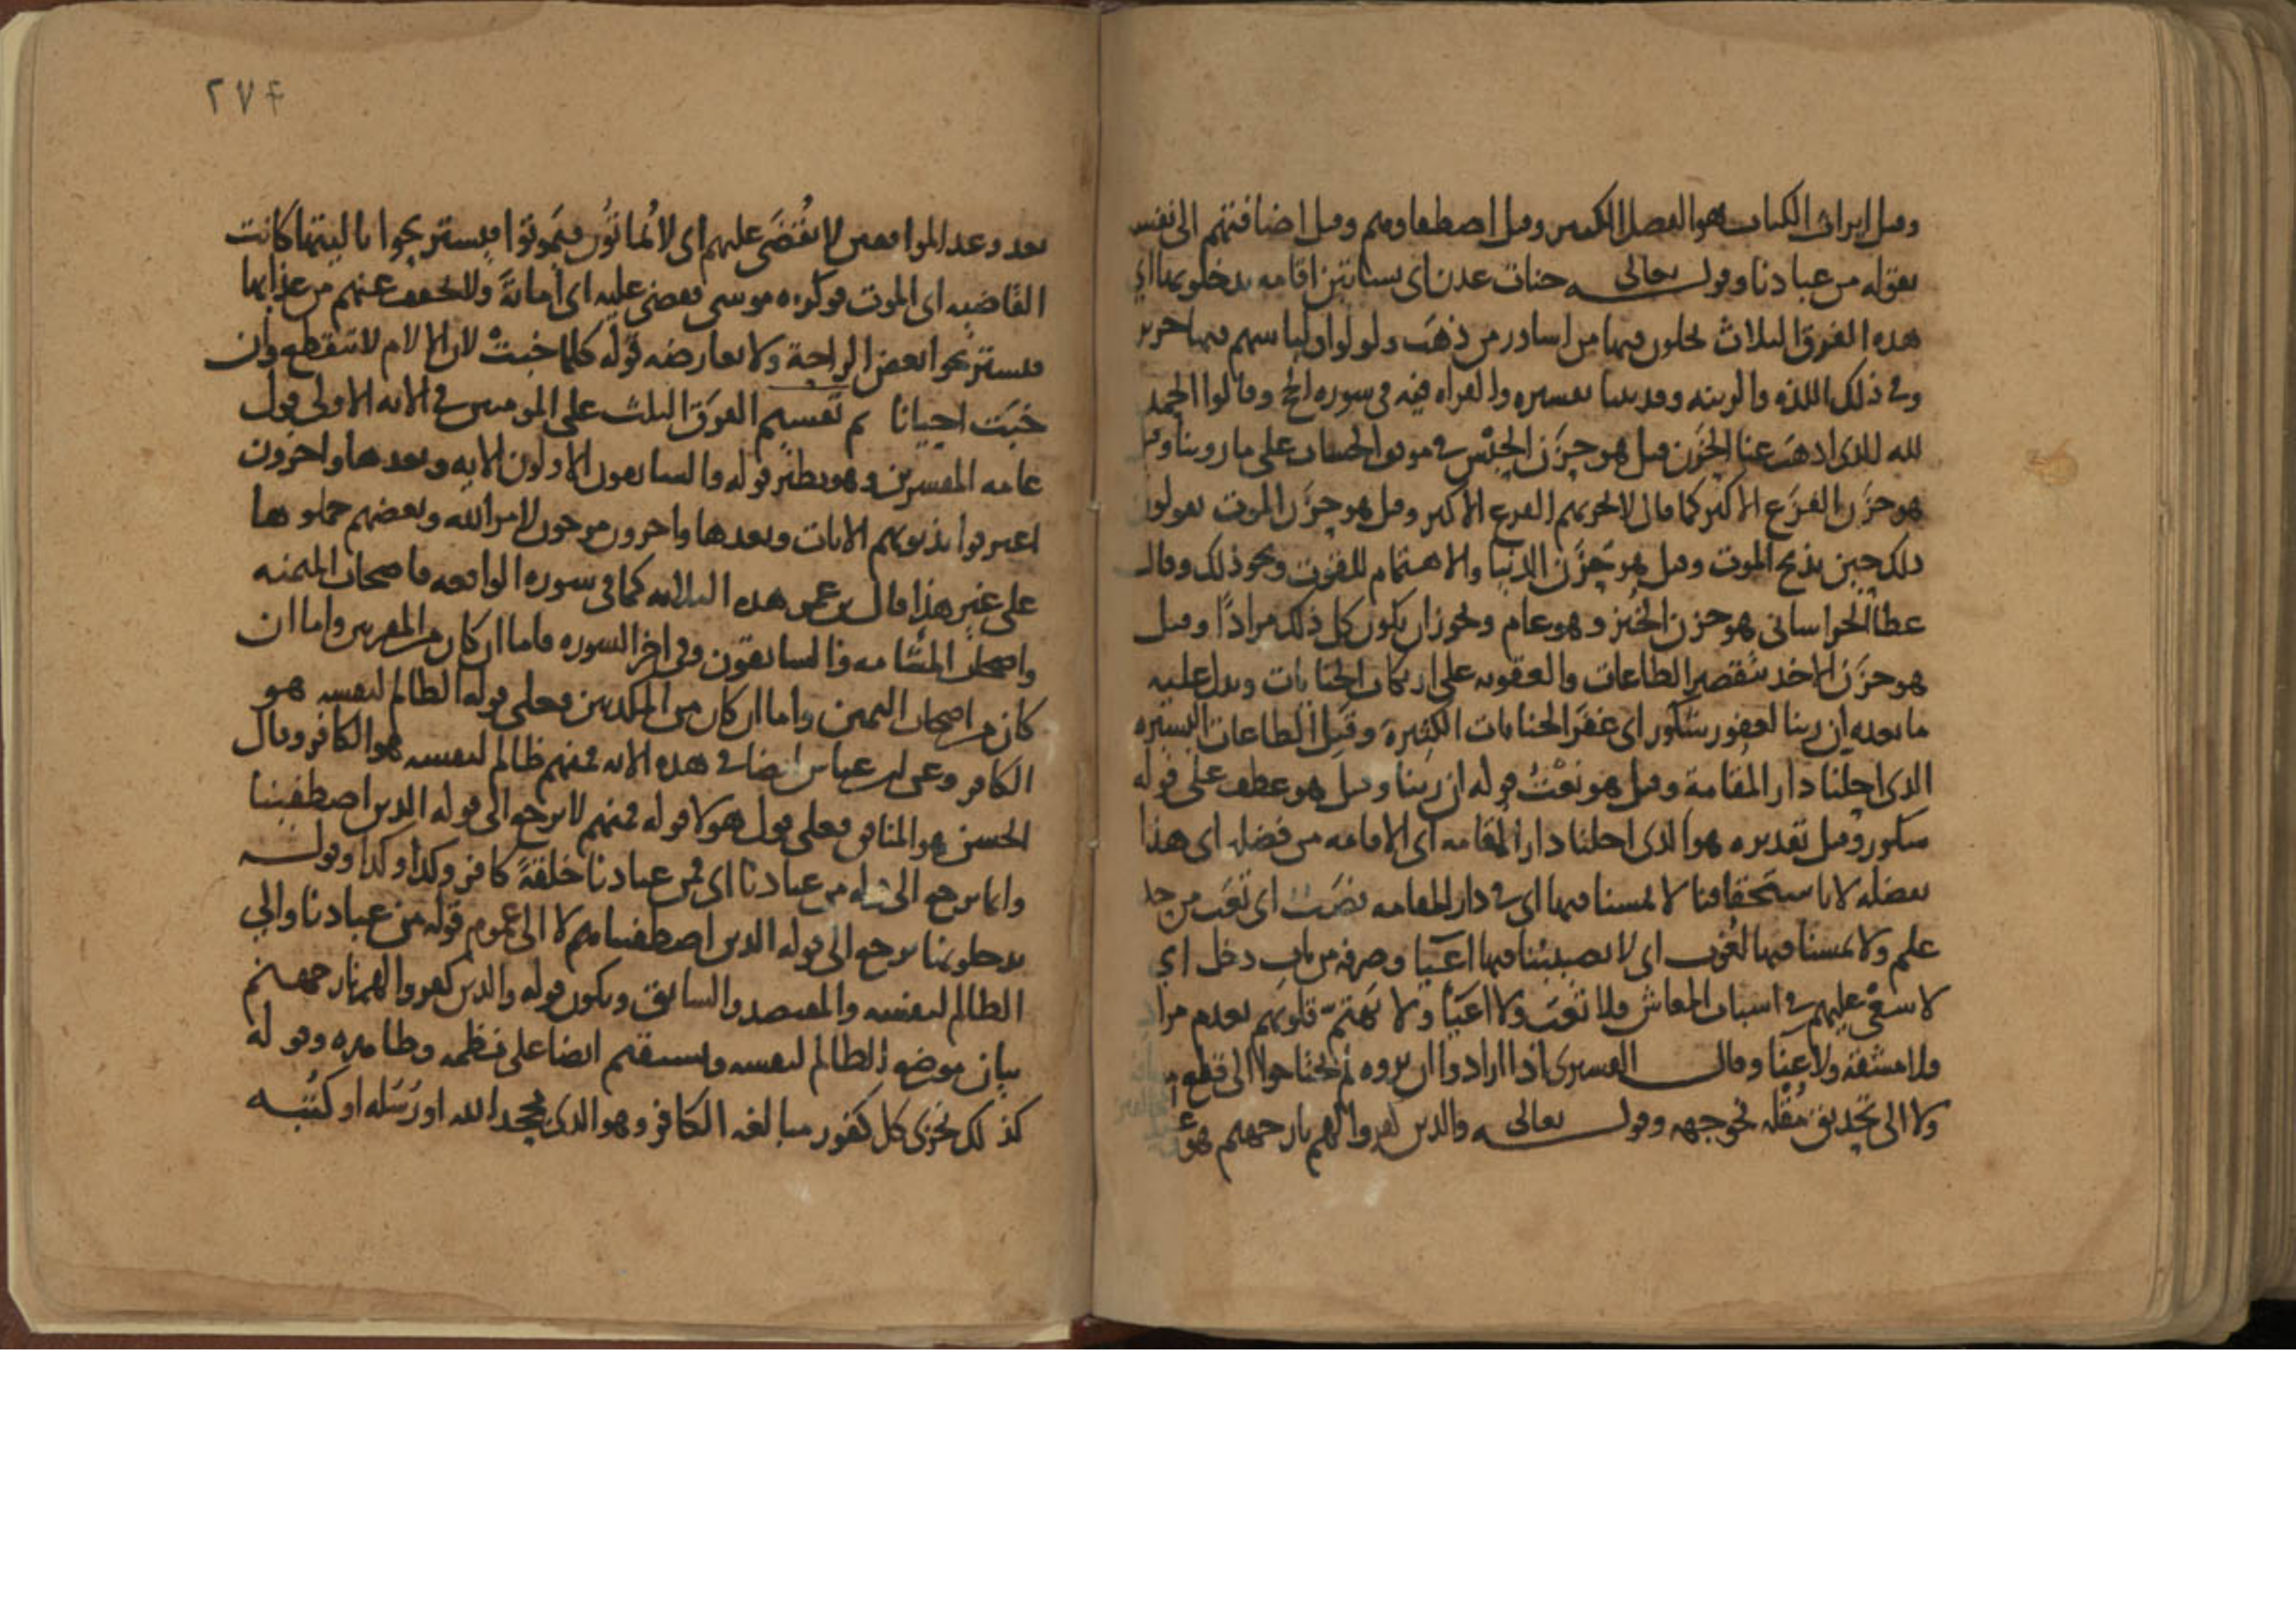 وقيل ايراث الكتاب هو الفضل الكبير وقيل اصطفاوهم وقيل اضافتهم الى نفسه
بقوله من عبادنا وقوله تعالى جنات عدن اى بساتين اقامه يدخلونها اي
هذه الفرق الثلاث يحلون فيها من اساور من ذهب ولولوا ولباسهم فيها حرير
وفي ذلك اللذه والزينه وقد بينا تفسيره والقراه فيه في سوره الحج وقالوا الحمد
لله الذى اذهب عنا الحزن قيل هو حزن الحبس في موقف الحساب على ما روينا وقيل
هو حزن الفزع الاكبر كما قال لا يحزنهم الفزع الاكبر وقيل هو حزن الموت يقولون
ذلك حين يذبح الموت وقيل هو حزن الدنيا والاهتمام للقوت ونحو ذلك وقال
عطا الخراسانى هو حزن الخبز وهو عام ويجوز ان يكون كل ذلك مرادًا وقيل
هو حزن الاخذ بتقصير الطاعات والعقوبه على ارتكاب الجنايات ويدل عليه
ما بعده ان ربنا لغفور شكور اى غفر الجنايات الكثيرة وقبل الطاعات اليسيره
الذى احلنا دار المقامة وقيل هو نعت قوله ان ربنا وقيل هو عطف على قوله
شكور وقيل تقديره هو الذى احلنا دار المقامه اى الاقامه من فضله اى هذا
بفضله لا باستحقاقنا لا يمسنا فيها اى في دار المقامه نصب اى تعب من
علم ولا يمسنا فيها لغوب اى لا يصيبنا فيها اعيا وصرفه من باب دخل اي
لا سعي عليهم في اسباب المعاش فلا تعب ولا اعيا ولا تهتم قلوبهم بعدم مراد
ولا مشقه ولا عنا وقال القشيرى اذا ارادوا ان يروه لم يحتاجوا الى قطع
ولا الى تحديق مقله نحو جهه وقوله تعالى والذين كفروا لهم نار جهنم هو
٢٧٤
بعد وعد الموافقين لا يقضى عليهم اى لا يُماتُون فيموتوا فيستريحوا يا ليتها كانت
القاضيه اى الموت فوكزه موسى فقضى عليه اى اماته ولا يخفف عنهم من عذابها
فيستريحوا بعض الراحة ولا يعارضه قوله كلما خبت لان الالام لا تنقطع وان
خبت احيانا ثم تقسيم الفرق الثلث على المومنين في الايه الاولى قول
عامه المفسرين وهو نظير قوله والسابقون الاولون الايه وبعدها واخرون
اعترفوا بذنوبهم الايات وبعدها واخرون مرجون لامر الله وبعضهم حملوها
على غير هذا قال بن عمر هذه الثلاثه كما في سوره الواقعه فاصحاب الميمنه
واصحاب المشامه والسابقون وفي اخر السوره فاما ان كان من المقربين واما ان
كان من اصحاب اليمين واما ان كان من المكذبين فعلى قوله الظالم لنفسه هو
الكافر وعن ابن عباس ايضا في هذه الايه فمنهم ظالم لنفسه هو الكافر وقال
الحسن هو المنافق فعلى قول هولا قوله فمنهم لا يرجع الى قوله الذين اصطفينا
وانما يرجع الى قوله من عبادنا اى فمن عبادنا خلقة كافر وكذا وكذا وقوله
يدخلونها يرجع الى قوله الذين اصطفيناهم لا الى عموم قوله من عبادنا والى
الظالم لنفسه والمقتصد والسابق ويكون قوله والذين كفروا لهم نار جهنم
بيان موضع الظالم لنفسه ويستقيم ايضا على نظمه وظاهره وقوله
كذلك نجزى كل كفور مبالغه الكافر وهو الذى يجحد الله او رسله او كتبه